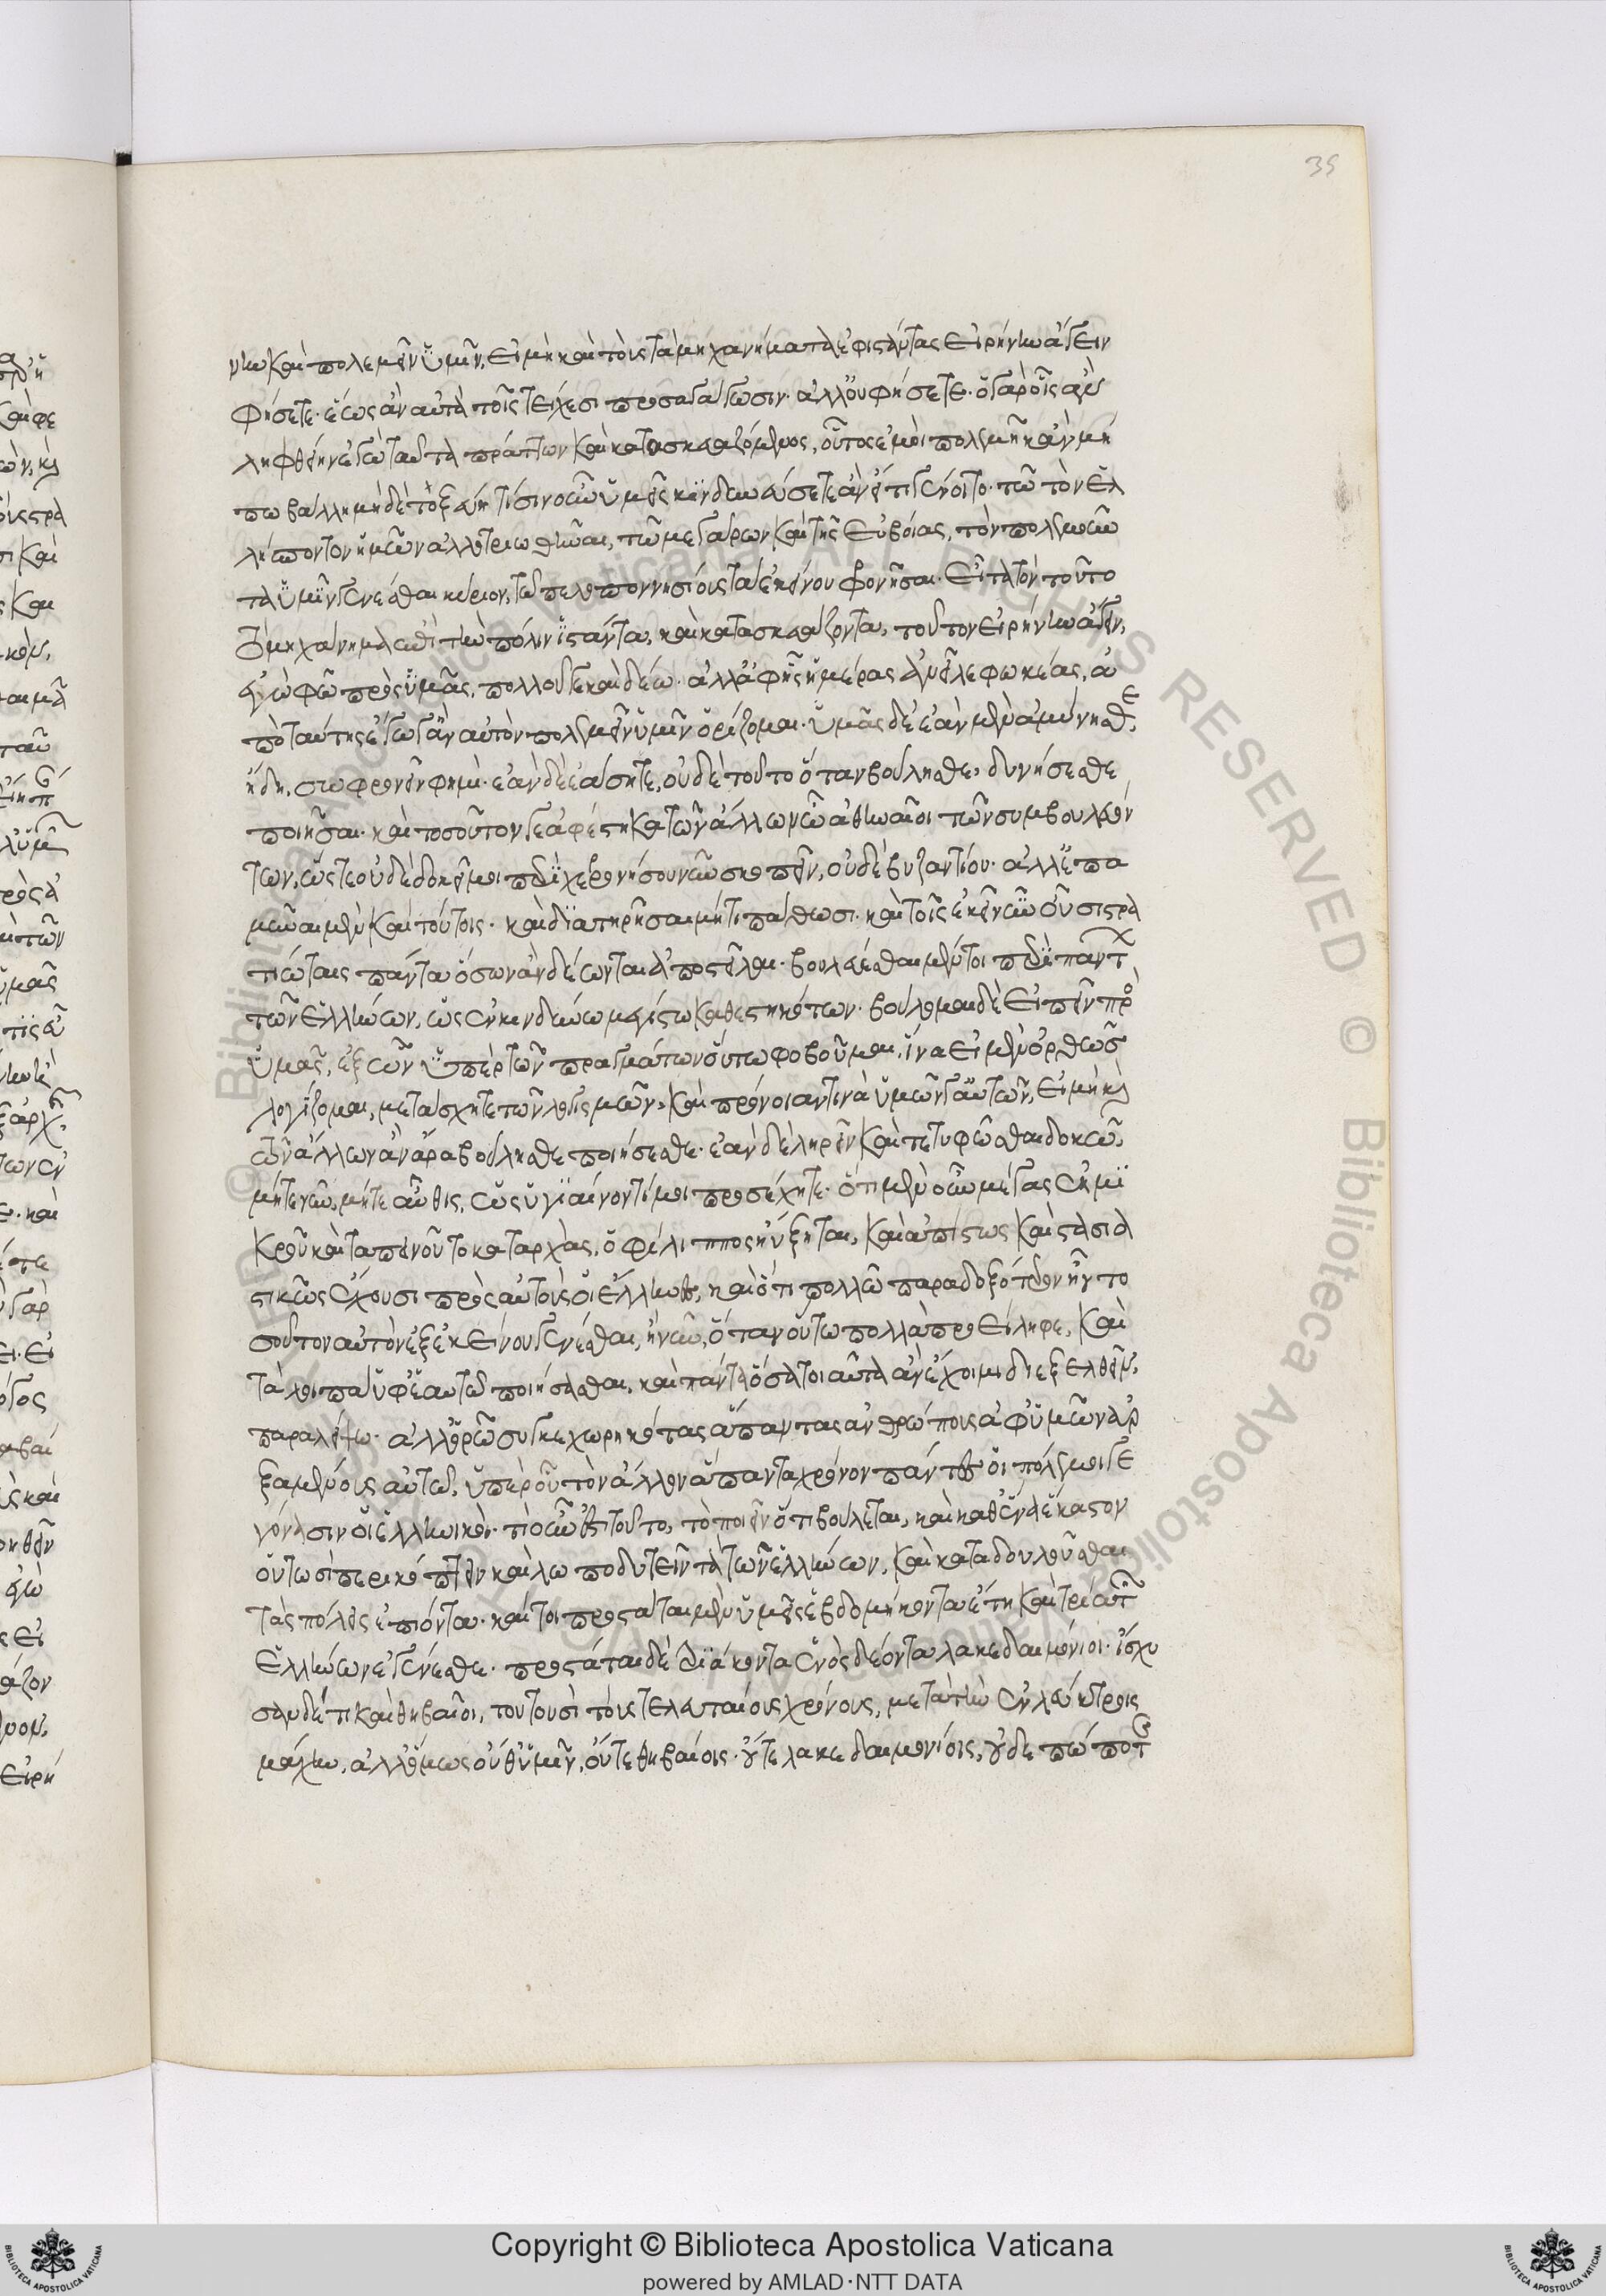 35
νην καὶ πολεμεῖν ὑμῖν, εἰ μὴ καὶ τοὺς τὰ μηχανήματα ἐφιστάντας εἰρήνην ἄγειν
φήσετε. ἕως ἂν αὐτὰ τοῖς τείχεσι προσαγάγωσιν. ἀλλ' οὐ φήσετε. ὁ γὰρ οἷς ἂν
ληφθείην ἐγὼ ταῦτα πράττων καὶ κατασκευαζόμενος, οὗτος ἐμοὶ πολεμεῖ κἂν μή
πω βάλλῃ μηδὲ τοξεύῃ τίσιν οὖν ὑμεῖς κινδυνεύσετε ἂν εἴ τι γένοιτο. τῷ τὸν ἑλ
λήσποντον ὑμῶν ἀλλοτριωθῆναι, τῷ μεγάρων καὶ τῆς εὐβοίας, τὸν πολεμοῦν
τα ὑμῖν γενέσθαι κύριον, τῷ πελοποννησίους τὰ ἐκείνου φρονῆσαι. εἶτα τὸν τοῦτο
τὸ μηχάνημα ἐπὶ τὴν πόλιν ἱστάντα, καὶ κατασκευάζοντα, τοῦτον εἰρήνην ἄγειν,
ἐγὼ φῶ πρὸς ὑμᾶς, πολλοῦ γε καὶ δέω. ἀλλ' ἀφ' ἧς ἡμέρας ἀνεῖλε φωκέας, ἀ
πὸ ταύτης ἔγωγ' ἂν αὐτὸν πολεμεῖν ὑμῖν ὁρίζομαι. ὑμᾶς δὲ ἐὰν μὲν ἀμύνησθε,
ἤδη, σωφρονεῖν φημί. ἐὰν δὲ ἐάσητε, οὐδὲ τοῦτο ὅταν βούλησθε, δυνήσεσθε
ποιῆσαι. καὶ τοσοῦτόν γε ἀφέστηκα τῶν ἄλλων ὦ ἀθηναῖοι τῶν συμβουλευόν
των, ὥστε οὐδὲ δοκεῖ μοι περὶ χερονήσου νῦν σκοπεῖν, οὐδὲ βυζαντίου. ἀλλ' ἐπα
μῦναι μὲν καὶ τούτοις. καὶ διατηρῆσαι μή τι πάθωσι. καὶ τοῖς ἐκεῖ νῦν οὖσι στρα
τιώταις πάντα ὅσων ἂν δέωνται ἀποστεῖλαι. βουλεύεσθαι μέντοι περὶ πάντ
τῶν ἑλλήνων, ὡς ἐν κινδύνῳ μεγίστῳ καθεστηκότων. βούλομαι δὲ εἰπεῖν πρὸς
ὑμᾶς, ἐξ ὧν ὑπὲρ τῶν πραγμάτων οὕτω φοβοῦμαι. ἵνα εἰ μὲν ὀρθῶς
λογίζομαι, μετάσχητε τῶν λογισμῶν, καὶ πρόνοιάν τινα ὑμῶν γ' αὐτῶν, εἰ μὴ καὶ
τῶν ἄλλων ἂν ἄρα βούλησθε ποιήσεσθε. ἐὰν δὲ ληρεῖν καὶ τετυφῶσθαι δοκῶ,
μήτε νῦν, μήτε αὖθις, ὡς ὑγιαίνοντί μοι προσέχητε. ὅτι μὲν οὖν μέγας ἐκ μι
κροῦ καὶ ταπεινοῦ τὸ καταρχὰς, ὁ φίλιππος ηὔξηται, καὶ ἀπίστως καὶ στασια
στικῶς ἔχουσι πρὸς αὑτοὺς οἱ ἕλληνες, καὶ ὅτι πολλῷ παραδοξότερον ἦν το
σοῦτον αὐτὸν ἐξ ἐκείνου γενέσθαι, ἢ νῦν, ὅταν οὕτω πολλὰ προείληφε, καὶ
τὰ λοιπὰ ὑφ' ἑαυτῷ ποιήσασθαι, καὶ πάντα ὅσα τοιαῦτα ἂν ἔχοιμι διεξελθεῖν,
παραλείψω. ἀλλ' ὁρῶ συγκεχωρηκότας ἅπαντας ἀνθρώπους ἀφ' ὑμῶν ἀρ
ξαμένους αὐτῷ, ὑπὲρ οὗ τὸν ἄλλον ἅπαντα χρόνον πάντες οἱ πόλεμοι γε
γόνασιν οἱ ἑλληνικοί. τί οὖν ἐστι τοῦτο, τὸ ποιεῖν ὅ τι βούλεται, καὶ καθ' ἕνα ἕκαστον
οὑτωσὶ περικόπτειν καὶ λωποδυτεῖν τὰ τῶν ἑλλήνων, καὶ καταδουλοῦσθαι
τὰς πόλεις ἐπιόντα. καίτοι προστάται μὲν ὑμεῖς ἑβδομήκοντα ἔτη καὶ τρία τῶν
ἑλλήνων ἐγένεσθε. προστάται δὲ τριάκοντα ἑνὸς δέοντα λακεδαιμόνιοι. ἴσχυ
σαν δέ τι καὶ θηβαῖοι, τουτουσὶ τοὺς τελευταίους χρόνους, μετὰ τὴν ἐν λεύκτροις
μάχην, ἀλλ' ὅμως οὔθ' ὑμῖν, οὔτε θηβαίοις. οὔτε λακεδαιμονίοις, οὐδεπώποτε
Copyright © Biblioteca Apostolica Vaticana
powered by AMLAD·NTT DATA